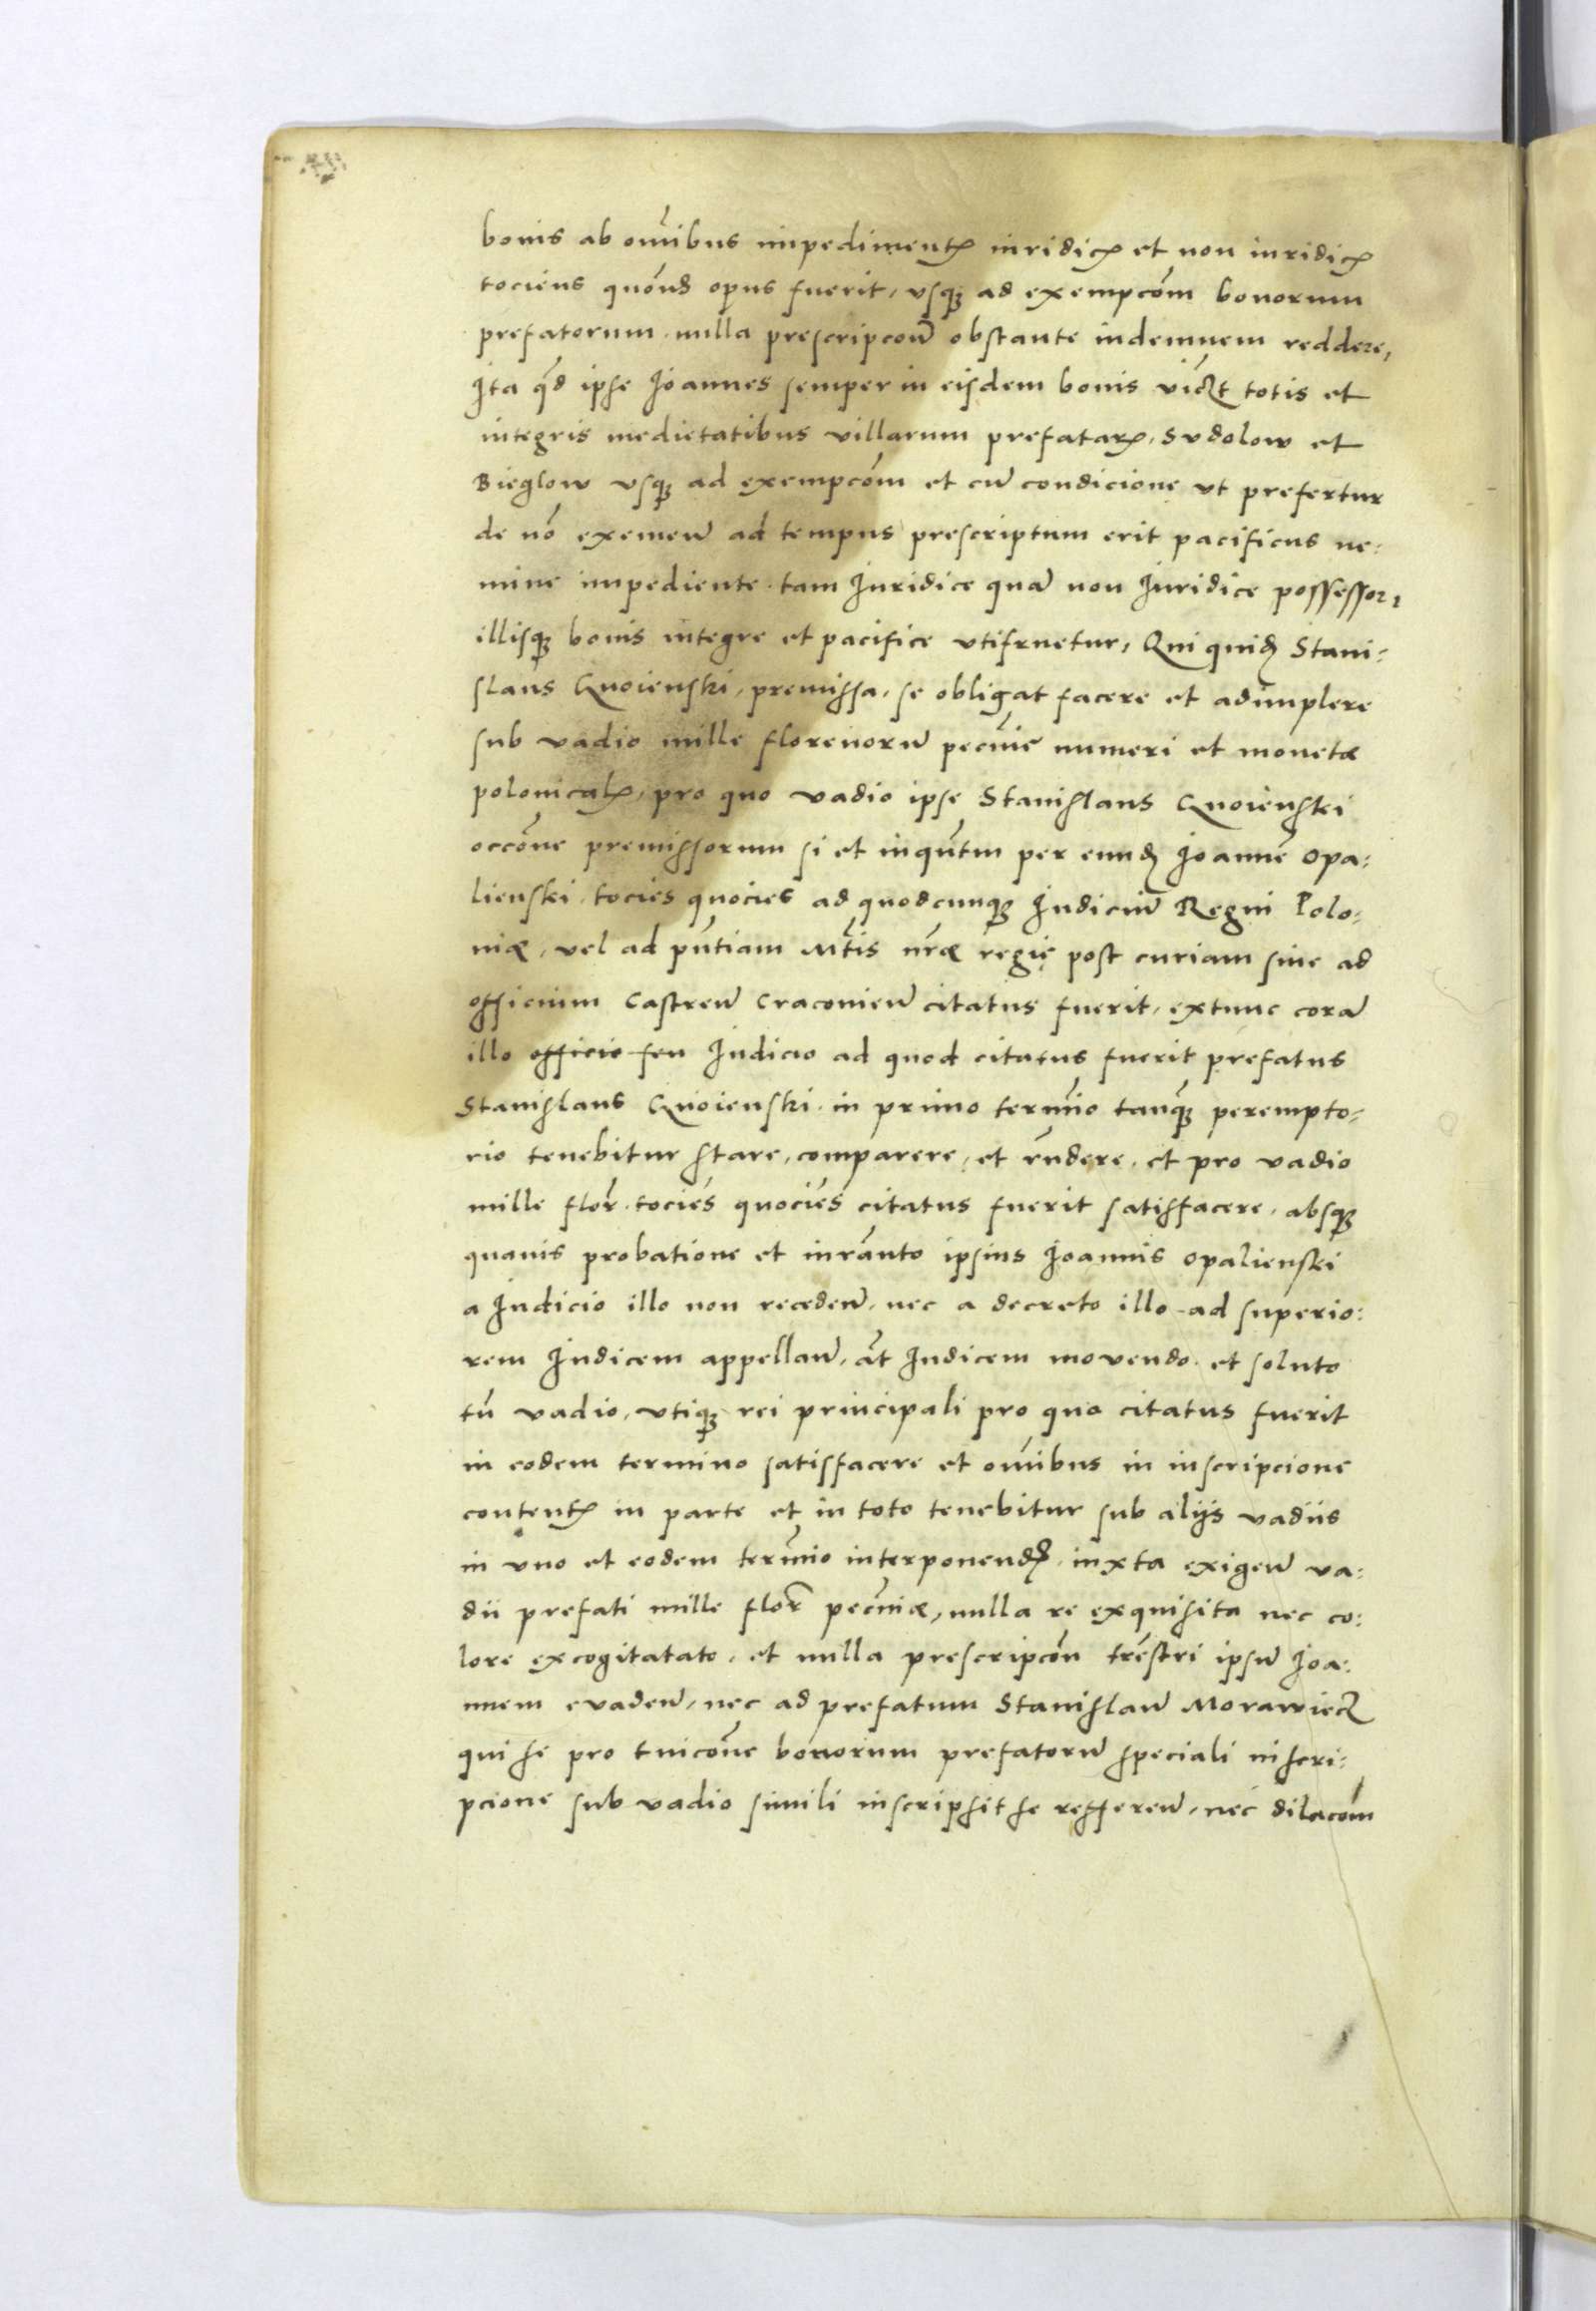 bonis ab om̄ibus impedimentꝭ iuridicꝭ et non iuridicꝭ
tociens quōnd opus fuerit, vsqꝫ ad exempcōm bonorum
prefatorum. nulla prescripcoñ obstante indemnem reddere,
Ita qd̄ ipse Ioannes semper in eisdem bonis vicꝫt totis et
integris medietatibus villarum prefatarꝭ, Sudolow et
Bieglow vsqꝫ ad exempcōm et cū condicione ut prefertur
de nō exemeñ ad tempus prescriptum erit pacificus ne:
mine impediente. tam Iuridice quā non Iuridice possessor,
illisqꝫ bonis integre et pacifice vtifruetur, Qui quidꝫ Stani:
slaus Gnoienski, premissa, se obligat facere et adimplere
sub vadio mille florenorū pecūie numeri et monetæ
polonicalꝭ, pro quo vadio ipse Stanislaus Gnoienski
occōne premissorum si et inqun̄tm per eundꝫ Joannē Opa:
lienski. tocies quocies ad quodcunqꝫ Iudiciū Regni Polo:
niæ, vel ad pn̄tiam Mt̄is nr̄æ regię post curiam siue ad
officium Castreñ Cracouieñ citatus fuerit, extunc corā
illo officio seu Iudicio ad quod citatus fuerit prefatus
Stanislaus Gnoienski. in primo term̄io tanqꝫ perempto:
rio tenebitur stare, comparere, et rn̄dere. et pro vadio
mille flor̄. tocies quocies citatus fuerit satisfacere. absqꝫ
quauis probatione et iurān̄to ipsius Joannis Opalienski
a Iudicio illo non recedeñ, nec a decreto illo ad superio:
rem Iudicem appellañ, āt Iudicem mouendo. et soluto
tn̄ vadio, vtiqꝫ rei principali pro qua citatus fuerit
in eodem termino satisfacere et om̄ibus in inscripcione
contentꝭ in parte et in toto tenebitur sub alijs vadiis
in vno et eodem term̄io interponendꝭ. iuxta exigeñ va:
dii prefati mille flor̄ pecūiæ, nulla re exquisita nec co:
lore excogitatato. et nulla prescripcōn trēstri ipsū Ioa:
nnem euadeñ, nec ad prefatum Stanislaū Morawiecꝫ
qui se pro tuicōne bonorum prefatorū speciali inscri:
pcione sub vadio simili inscripsit se reffereñ, nec dilacōm